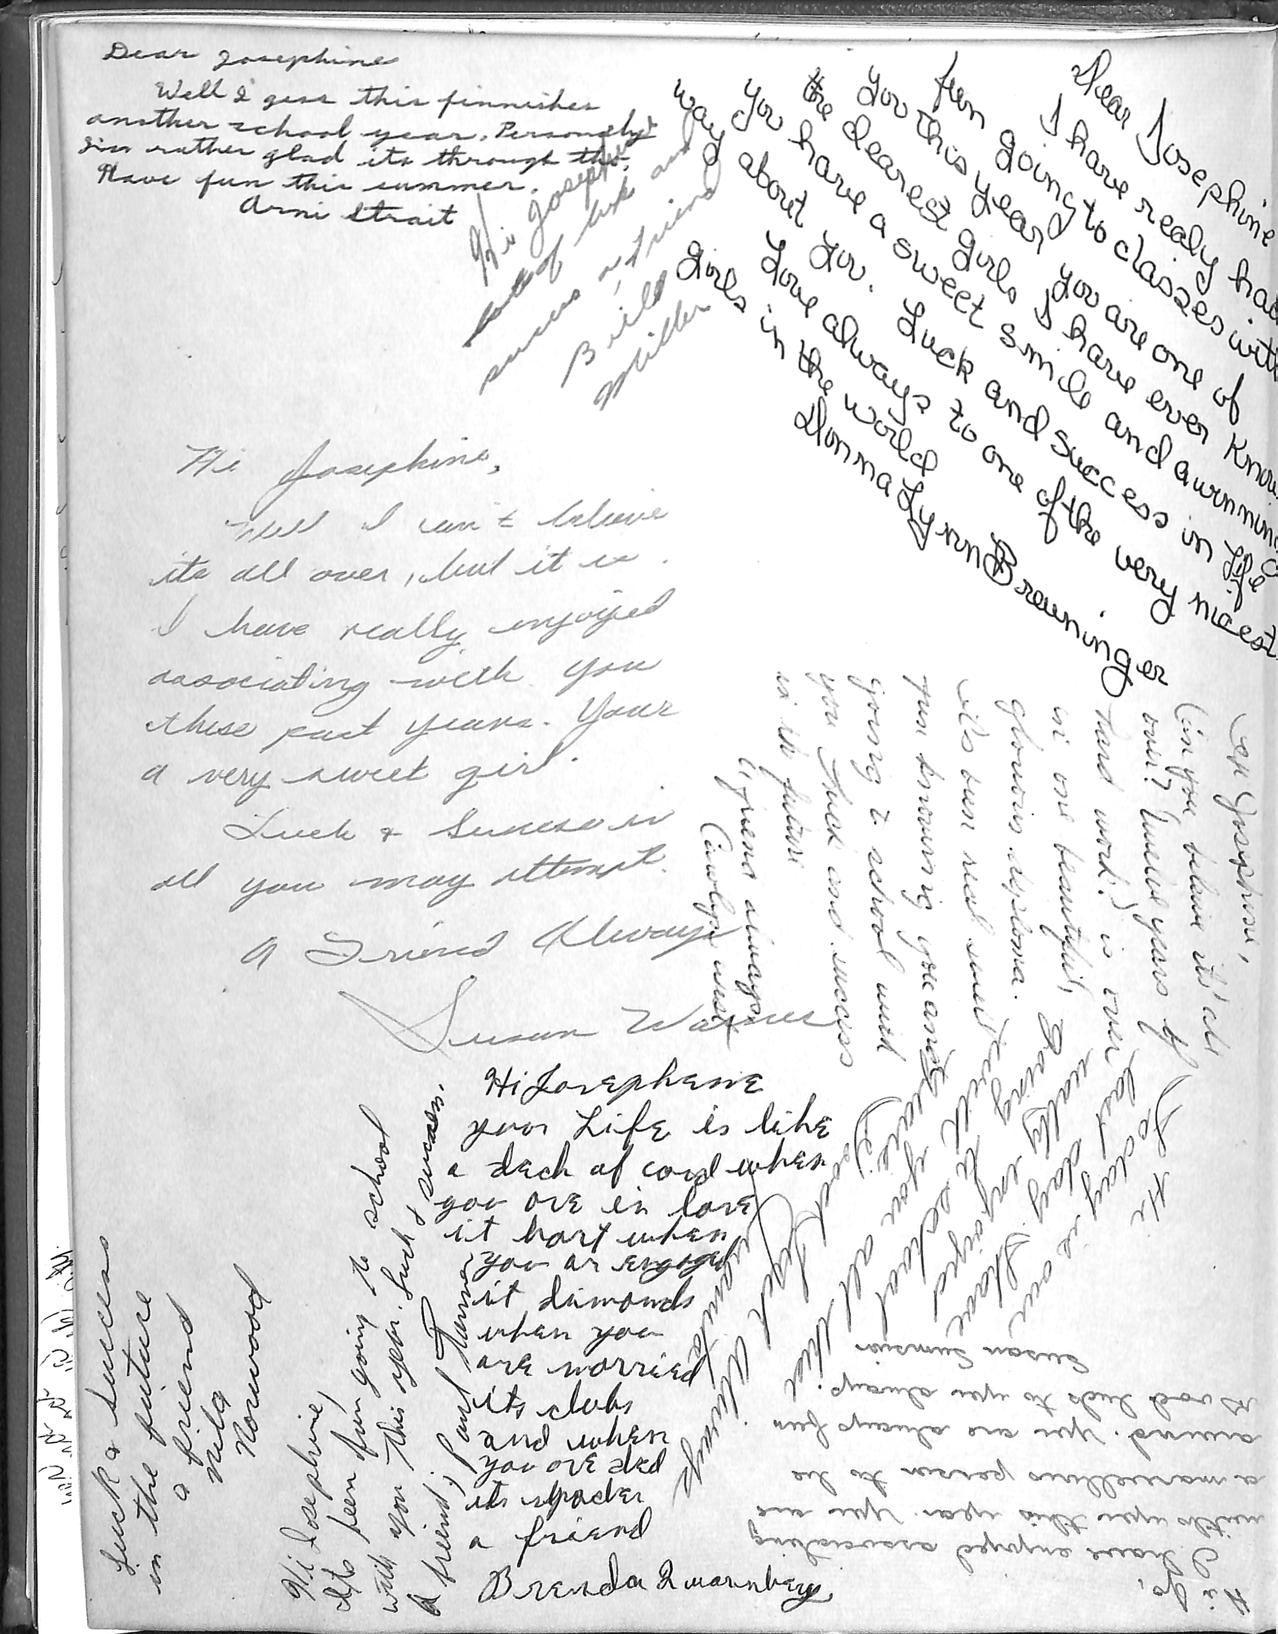 Dear Josephine
Well I gess this finnishes
another school year. Personely
I'm rather glad its through tho.
Have fun this summer.
Arni Strait
Hi Josephine
Lots of luck and
success a friend
Bill
Miller
Dear Josephine
I have realy had
fun going to classes with
you this year you are one of
the dearest girls I have ever known
you have a sweet smile and a winning
way about you. Luck and success in life
Love always to one of the very nicest
girls in the world
Donna Lynn Breuninger
Hi Josephine,
Well I can't believe
its all over, but it is.
I have really enjoyed
associating with you
these past years. Your
a very sweet girl.
Luck & Success in
all you may attempt.
A Friend Always
Susan Warner
Josephine,
Can you believe it's all
over? Twelve years of
hard work! is over
in one beautiful,
glowing diploma.
It's been real sweet
fun knowing you and
going to school with
you luck and success
in the future
A friend always
Carolyn West
Jo
Today is our
last day. I have
really enjoyed
going to school
with you all this
year.
Good Luck always
Juanita
Hi Josephene
your Life is like
a deck of card when
you are in love
it hart when
you ar engaged
it dimonds
when you
are worried
its clubs
and when
you are ded
its spades
a friend
Brenda Quarnberg
Luck & success
in the future
a friend
Nila
Norwood
Hi Josephine,
It's been fun going to school
with you this year. Luck & success.
A friend, Paul Tanner
Hi Jo,
I have enjoyed associating
with you this year. You are
a marvellous person to be
around. You are always fun
Good luck to you always.
Susan